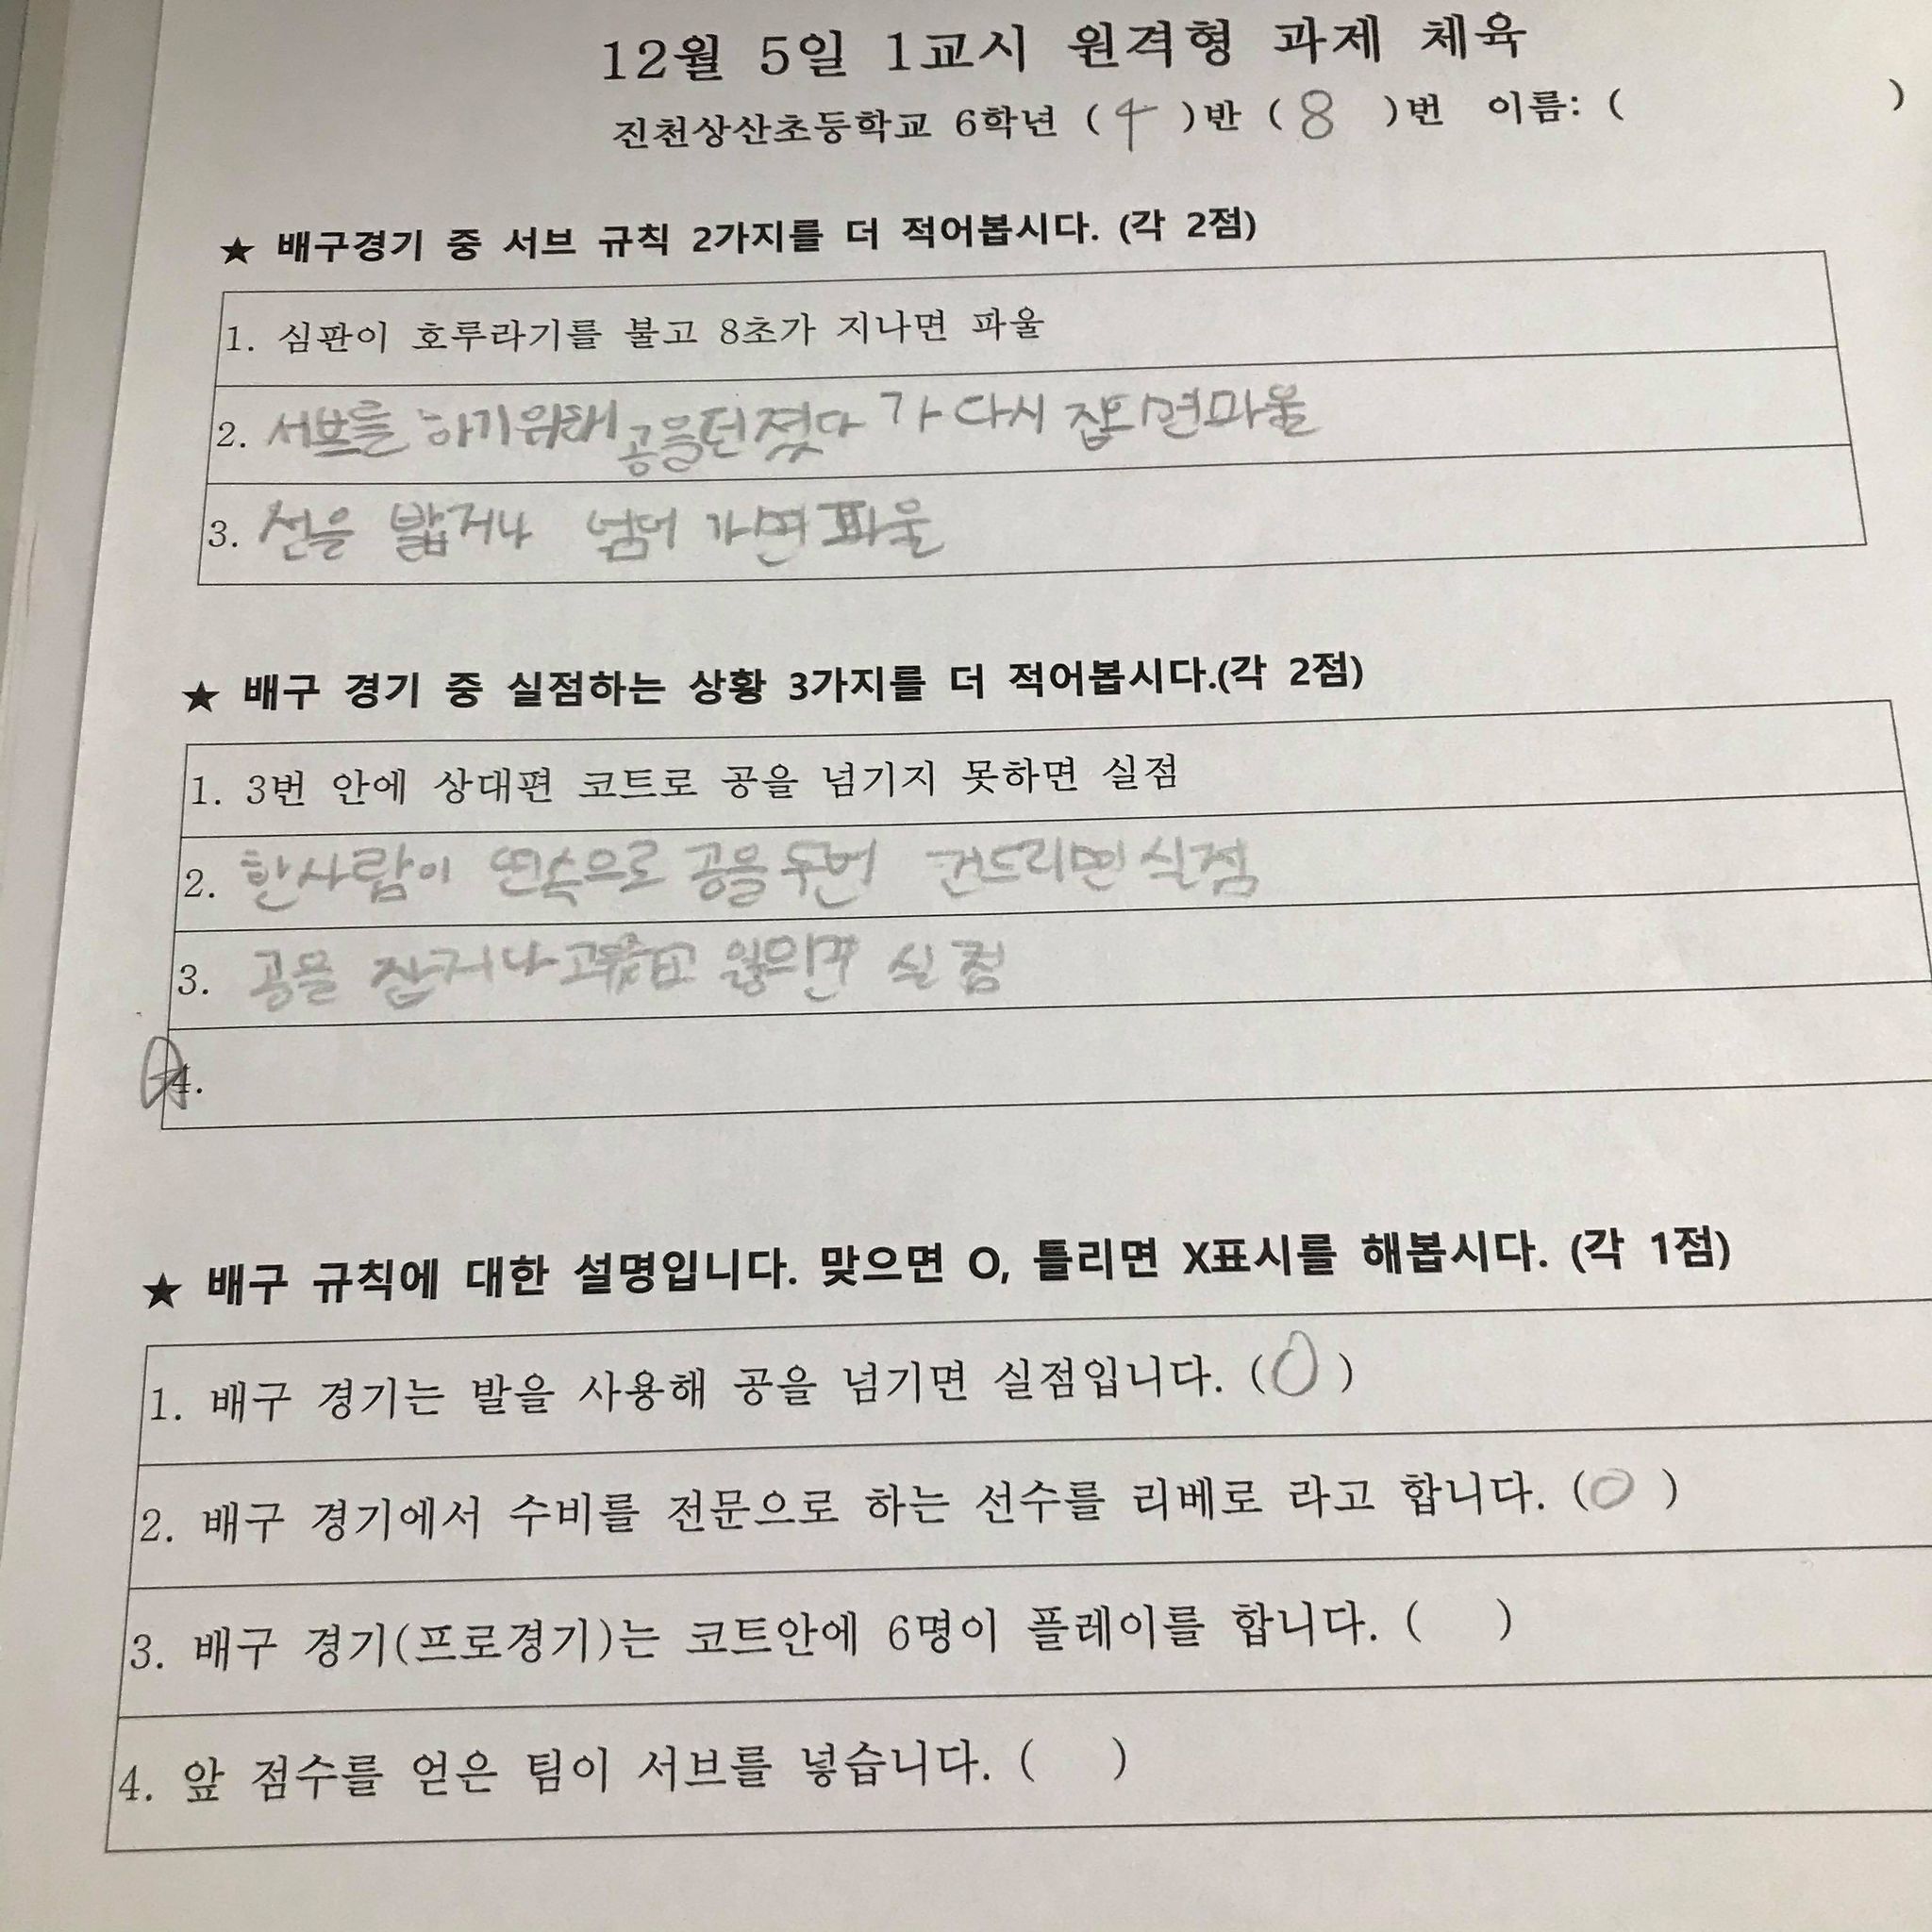 12월 5일 1교시 원격형 과제 체육
진천상산초등학교 6학년 ( 4 )반 ( 8 )번 이름: ( )
★ 배구경기 중 서브 규칙 2가지를 더 적어봅시다. (각 2점)
1. 심판이 호루라기를 불고 8초가 지나면 파울
2. 서브를 하기위해 공을던젔다가 다시 잡으면파울
3. 선을 밟거나 넘어가면 파울
★ 배구 경기 중 실점하는 상황 3가지를 더 적어봅시다.(각 2점)
1. 3번 안에 상대편 코트로 공을 넘기지 못하면 실점
2. 한사람이 연속으로 공을 두번 건드리면 실점
3. 공을 잡거나 실점
4.
★ 배구 규칙에 대한 설명입니다. 맞으면 O, 틀리면 X표시를 해봅시다. (각 1점)
1. 배구 경기는 발을 사용해 공을 넘기면 실점입니다. (O)
2. 배구 경기에서 수비를 전문으로 하는 선수를 리베로 라고 합니다. (O)
3. 배구 경기(프로경기)는 코트안에 6명이 플레이를 합니다. ( )
4. 앞 점수를 얻은 팀이 서브를 넣습니다. ( )